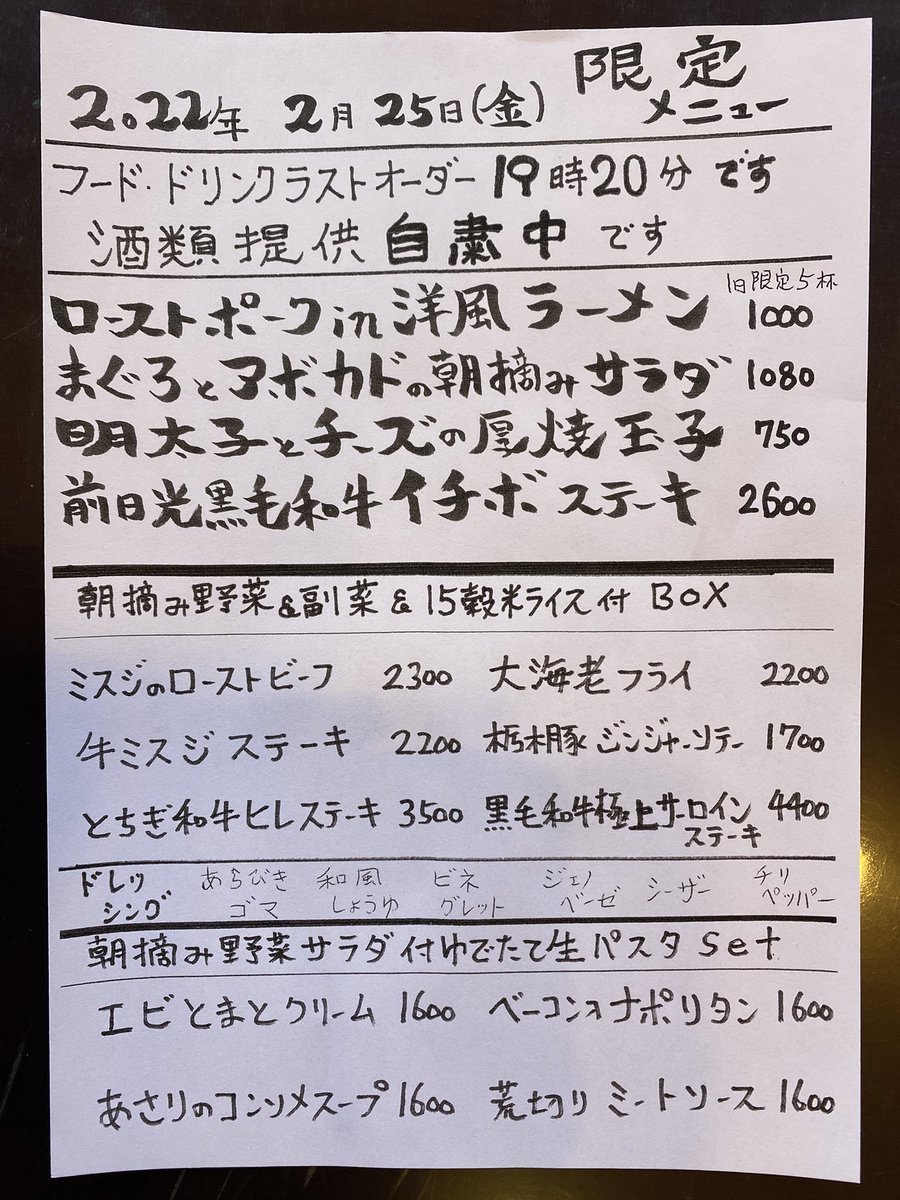 2022年 2月 25日(金) 限定
メニュー
フード・ドリンクラストオーダー 19時20分 です
酒類提供 自粛中 です
1日限定5杯
ローストポーク in 洋風ラーメン 1000
まぐろとアボカドの朝摘みサラダ 1080
明太子とチーズの厚焼玉子 750
前日光黒毛和牛イチボステーキ 2600
朝摘み野菜&副菜&15穀米ライス付 BOX
ミスジのローストビーフ 2300 大海老フライ 2200
牛ミスジステーキ 2200 栃木豚ジンジャーソテー 1700
とちぎ和牛ヒレステーキ 3500 黒毛和牛極上サーロイン 4400
ステーキ
ドレッ あらびき 和風 ビネ ジェノ シーザー チリ
シング ゴマ しょうゆ グレット ベーゼ ペッパー
朝摘み野菜サラダ付ゆでたて生パスタ Set
エビとまとクリーム 1600 ベーコンのナポリタン 1600
あさりのコンソメスープ 1600 荒切りミートソース 1600